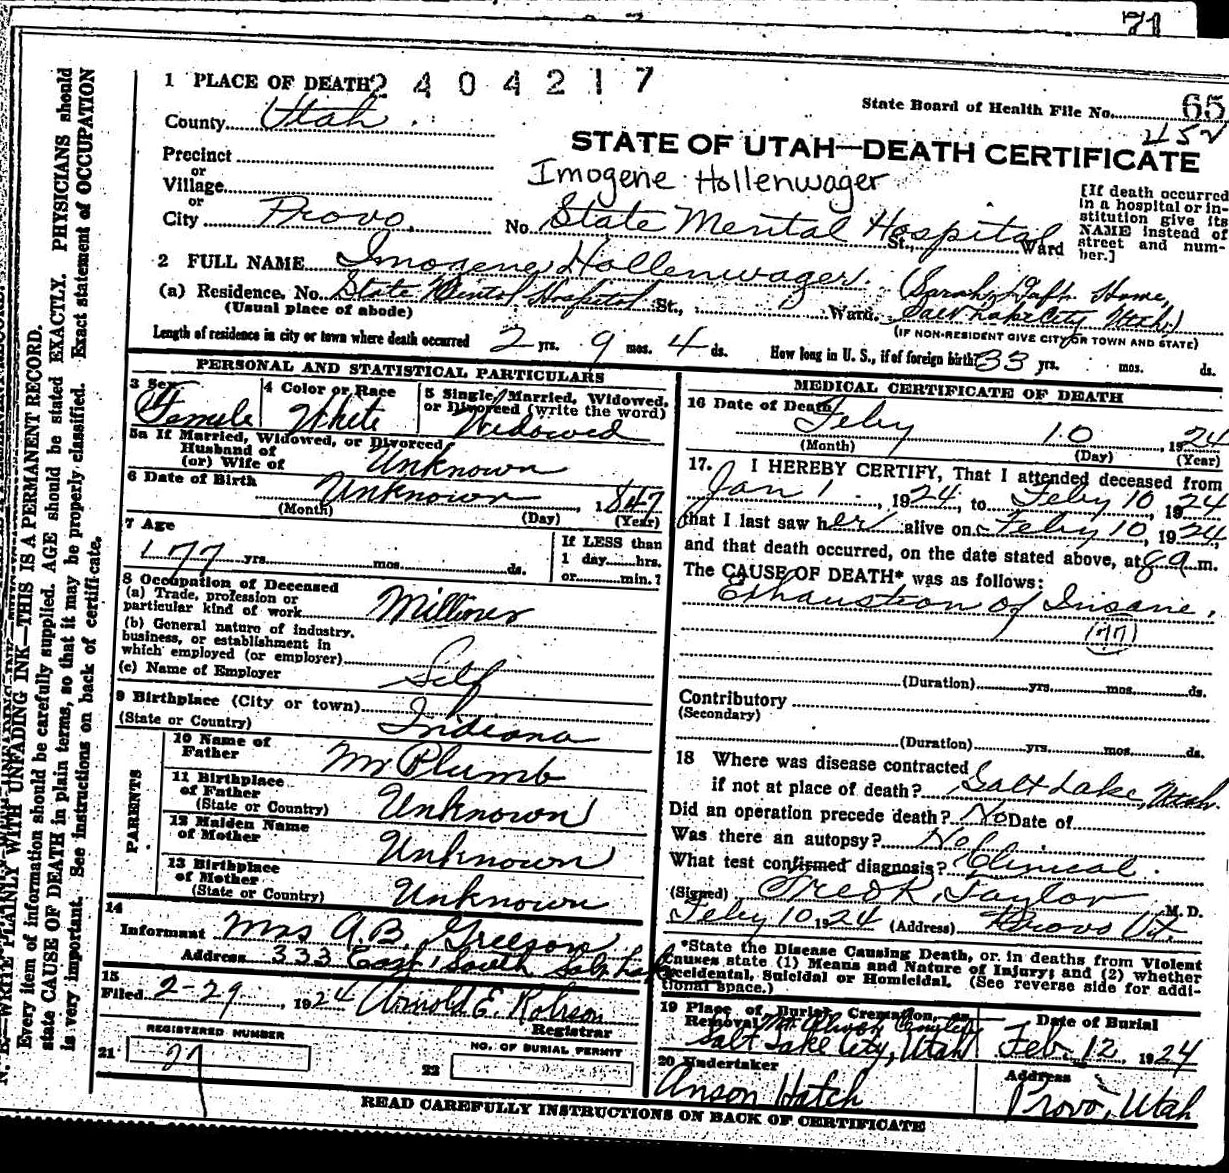 71
1 PLACE OF DEATH 2404217
State Board of Health File No. 65
452
County Utah
STATE OF UTAH—DEATH CERTIFICATE
Precinct
or
Village
Imogene Hollenwager
or
City Provo. No. State Mental Hospital St., Ward
[If death occurred in a hospital or institution give its NAME instead of street and number.]
2 FULL NAME Imogene Hollenwager. (Sarah Daft Home,
(a) Residence, No. State Mental Hospital St., Ward. Salt Lake City Utah)
(Usual place of abode) (IF NON-RESIDENT GIVE CITY OR TOWN AND STATE)
Length of residence in city or town where death occurred 2 yrs. 9 mos. 4 ds. How long in U. S., if of foreign birth? 33 yrs. mos. ds.
PERSONAL AND STATISTICAL PARTICULARS
3 Sex Female
4 Color or Race White
5 Single, Married, Widowed, or Divorced (write the word) Widowed
5a If Married, Widowed, or Divorced
Husband of
(or) Wife of Unknown
6 Date of Birth Unknown, 1847
(Month) (Day) (Year)
7 Age 77 yrs. mos. ds.
If LESS than
1 day hrs.
or min.?
8 Occupation of Deceased
(a) Trade, profession or
particular kind of work Milliner
(b) General nature of industry,
business, or establishment in
which employed (or employer)
(c) Name of Employer Self
9 Birthplace (City or town)
(State or Country) Indiana
PARENTS
10 Name of
Father Mr Plumb
11 Birthplace
of Father
(State or Country) Unknown
12 Maiden Name
of Mother Unknown
13 Birthplace
of Mother
(State or Country) Unknown
14
Informant Mrs A.B. Greeson
Address 333 East, South Salt Lak
15
Filed 2-29, 1924 Arnold E. Robison
Registrar
REGISTERED NUMBER
21 27
NO. OF BURIAL PERMIT
22
MEDICAL CERTIFICATE OF DEATH
16 Date of Death Feby 10, 1924
(Month) (Day) (Year)
17. I HEREBY CERTIFY, That I attended deceased from
Jan 1, 1924, to Feby 10, 1924
that I last saw her alive on Feby 10, 1924,
and that death occurred, on the date stated above, at 8 a. m.
The CAUSE OF DEATH* was as follows:
Exhaustion of Insane.
(77)
(Duration) yrs. mos. ds.
Contributory
(Secondary)
(Duration) yrs. mos. ds.
18 Where was disease contracted
if not at place of death? Salt Lake, Utah.
Did an operation precede death? No Date of
Was there an autopsy? No
What test confirmed diagnosis? Clinical.
(Signed) Fred R. Taylor M. D.
Feby 10 1924 (Address) Provo Ut.
*State the Disease Causing Death, or in deaths from Violent
Causes state (1) Means and Nature of Injury; and (2) whether
Accidental, Suicidal or Homicidal. (See reverse side for addi-
tional space.)
19 Place of Burial, Cremation, or
Removal Mt. Olivet Cemetery
Salt Lake City, Utah
Date of Burial
Feb. 12, 1924
20 Undertaker
Anson Hatch
Address
Provo, Utah
READ CAREFULLY INSTRUCTIONS ON BACK OF CERTIFICATE
N. B.—WRITE PLAINLY WITH UNFADING INK—THIS IS A PERMANENT RECORD.
Every item of information should be carefully supplied. AGE should be stated EXACTLY. PHYSICIANS should
state CAUSE OF DEATH in plain terms, so that it may be properly classified. Exact statement of OCCUPATION
is very important. See instructions on back of certificate.